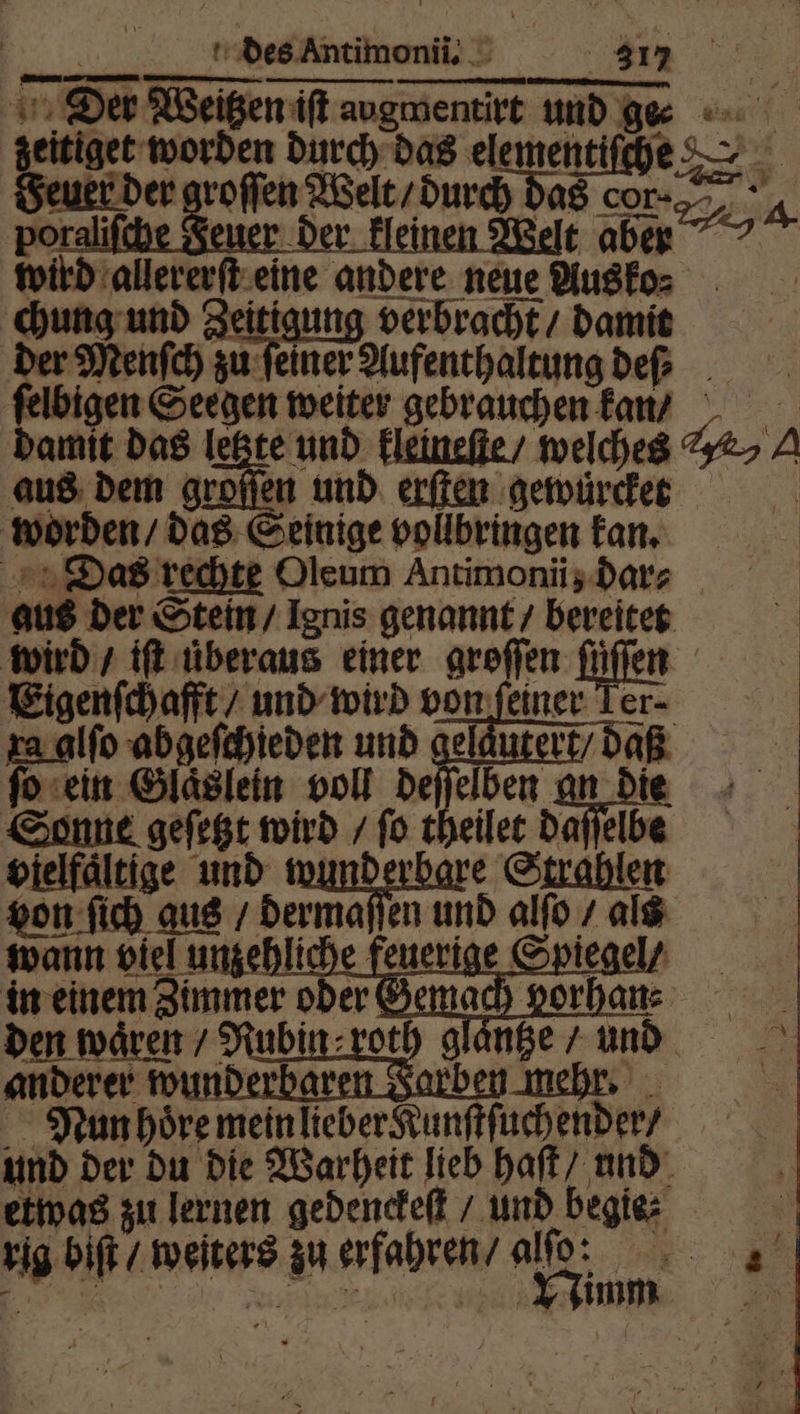 des Antimonii. 317
Der Weitzen iſt augmentirt und ge⸗
zeitiget worden durch das elementiſche
Feuer der groſſen Welt / durch das cor-
poraliſche Feuer der kleinen Welt aber
wird allererſt eine andere neue Ausko⸗
chung und Zeitigung verbracht / damit
der Menſch zu ſeiner Aufenthaltung deſ⸗
ſelbigen Seegen weiter gebrauchen kan /
damit das letzte und kleineſte / welches
aus dem groſſen und erſten gewuͤrcket
worden / das Seinige vollbringen kan.
Das rechte Oleum Antimonii, dar⸗
aus der Stein / Ignis genannt / bereitet
wird / iſt uͤberaus einer groſſen ſuͤſſen
Eigenſchafft / und wird von ſeiner Ter-
ra alſo abgeſchieden und gelaͤutert / daß
ſo ein Glaͤslein voll deſſelben an die
Sonne geſetzt wird / ſo theilet daſſelbe
vielfaͤltige und wunderbare Strahlen
von ſich aus / dermaſſen und alſo / als
wann viel unzehliche feuerige Spiegel /
in einem Zimmer oder Gemach vorhan⸗
den waͤren / Rubin⸗roth glaͤntze / und
anderer wunderbaren Farben mehr.
Nun hoͤre mein lieber Kunſtſuchender /
und der du die Warheit lieb haſt / und
etwas zu lernen gedenckeſt / und begie⸗
rig biſt / weiters zu erfahren / alſo:
Nimm